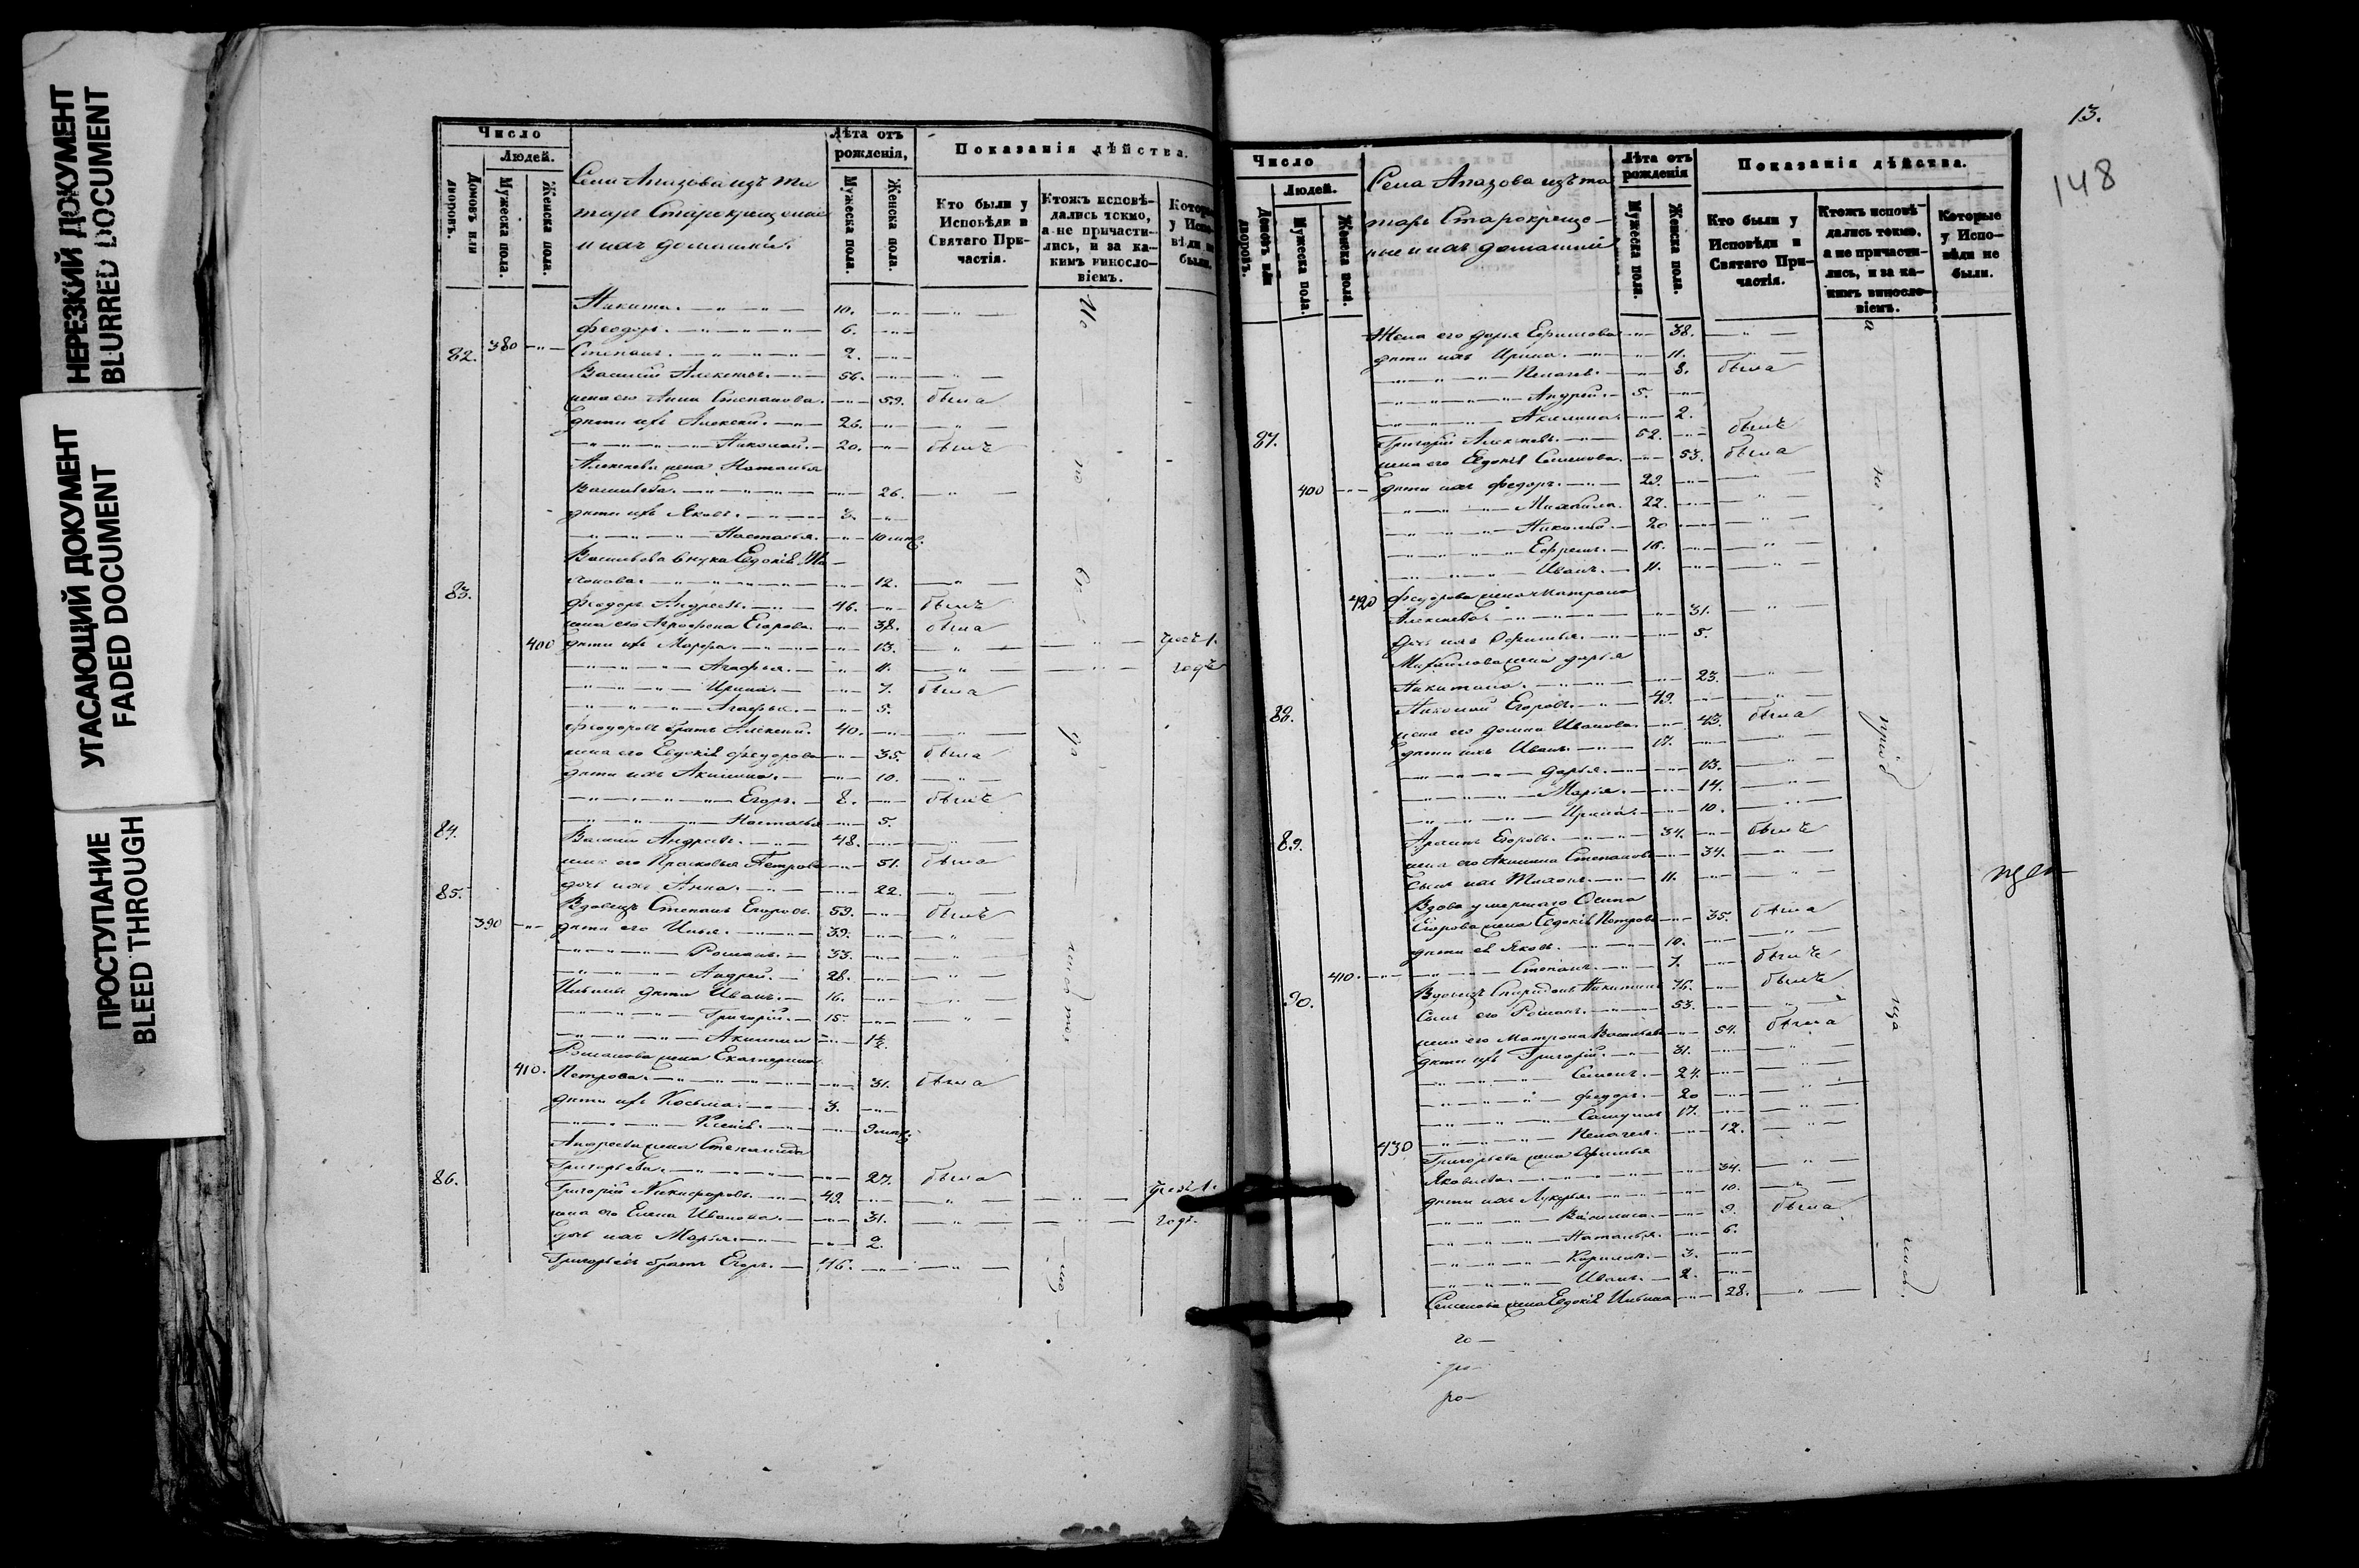 НЕРЕЗКИЙ ДОКУМЕНТ
BLURRED DOCUMENT
УГАСАЮЩИЙ ДОКУМЕНТ
FADED DOCUMENT
ПРОСТУПАНИЕ
BLEED THROUGH
Число
Людей.
Домовъ или дворовъ.
Мужеска пола.
Женска пола.
Села Апазова изъ та
таръ Старокрещеные
и ихъ домашніи.
Лѣта отъ рожденія,
Мужеска пола.
Женска пола.
Показанія дѣйства.
Кто были у Исповѣди и Святаго Причастія.
Ктожъ исповѣдались токмо, а не причастились, и за какимъ винословіемъ.
Которые у Исповѣди не были.
Никита. 10.
Феодоръ. 6.
82. 380 Степанъ. 2.
Василій Алексѣевъ. 56.
жена его Анна Степанова. 59. была
дѣти ихъ Алексѣй. 26.
Николай. 20. былъ
Алексѣева жена Наталья
Васильева. 26.
дѣти ихъ Яковъ. 3.
Настасья. 10 мѣс.
Васильева внука Евдокія
12.
83. Феодоръ Андреевъ. 46. былъ
жена его Агрофена Егорова. 38. была
400 дѣти ихъ Марфа. 13. чрезъ 1.
Агафья. 11. годъ
Ирина. 7. была
Агафья. 5.
Феодоровъ братъ Алексѣй. 40.
жена его Евдокія Федорова 35. была
дѣти ихъ Акилина. 10.
Егоръ. 8. былъ
Настасья 5.
84. Василій Андреевъ. 48.
жена его Прасковья Петрова 51. была
дочь ихъ Анна. 22.
85. Вдовецъ Степанъ Егоровъ. 59. былъ
390 дѣти его Илья. 39.
Романъ. 33.
Андрей. 28.
Ильины дѣти Иванъ. 16.
Григорій. 15.
Акилина 1½.
Романова жена Екатерина
410. Петрова. 31. была
дѣти ихъ Косьма. 3.
9 мѣс.
Андреева жена Степанида
Григорьева. 27. была
86. Григорій Никифоровъ. 49. чрезъ 1.
жена его Елена Иванова. 31. годъ.
дочь ихъ Марья. 2.
Григорьевъ братъ Егоръ. 46.
13.
148
Число
Людей.
Домовъ или дворовъ.
Мужеска пола.
Женска пола.
Села Апазова изъ та
таръ Староkреще-
ные и ихъ домашніи
Лѣта отъ рожденія
Мужеска пола.
Женска пола.
Показанія дѣйства.
Кто были у Исповѣди и Святаго Причастія.
Ктожъ исповѣдались токмо, а не причастились, и за какимъ винословіемъ.
Которые у Исповѣди не были.
Жена его Дарья Ефимова 38.
дѣти ихъ Ирина. 11.
Пелагея. 8. была
Андрей. 5.
Акилина. 2.
87. Григорій Алексѣевъ. 52. былъ
жена его Евдокія Семенова. 53. была
400 дѣти ихъ Федоръ. 29.
Михайла. 22.
Николай. 20
Ефремъ. 16.
Иванъ. 11.
420 Федорова жена Матрона
Алексѣева 31.
дочь ихъ Офимья. 5.
Михайлова жена Дарья
Никитина. 23.
88. Николай Егоровъ. 49.
жена его Домна Иванова. 43. была
дѣти ихъ Иванъ. 17.
Дарья. 13.
Марія. 14.
Ирина. 10.
89. Егоровъ. 34. былъ
жена его Акилина Степанова 34.
сынъ ихъ Тихонъ. 11.
Вдова умершаго Осипа
Егорова жена Евдокія Петрова 35. была
дѣти ея Яковъ. 10.
410. Степанъ. 7. былъ
90. Вдовецъ Спиридонъ Никитинъ 76. былъ
Сынъ его Романъ. 53.
жена его Матрона Васильева 54. была
дѣти ихъ Григорій. 31.
Семенъ. 24.
Федоръ. 20
Самуилъ 17.
430 Пелагея. 12.
Григорьева жена Офимья
Яковлева. 34.
дѣти ихъ Лукерья. 10.
Василиса. 9. была
Наталья. 6.
Кирилъ. 3.
Иванъ. 2.
Семенова жена Евдокія Ильина 28.